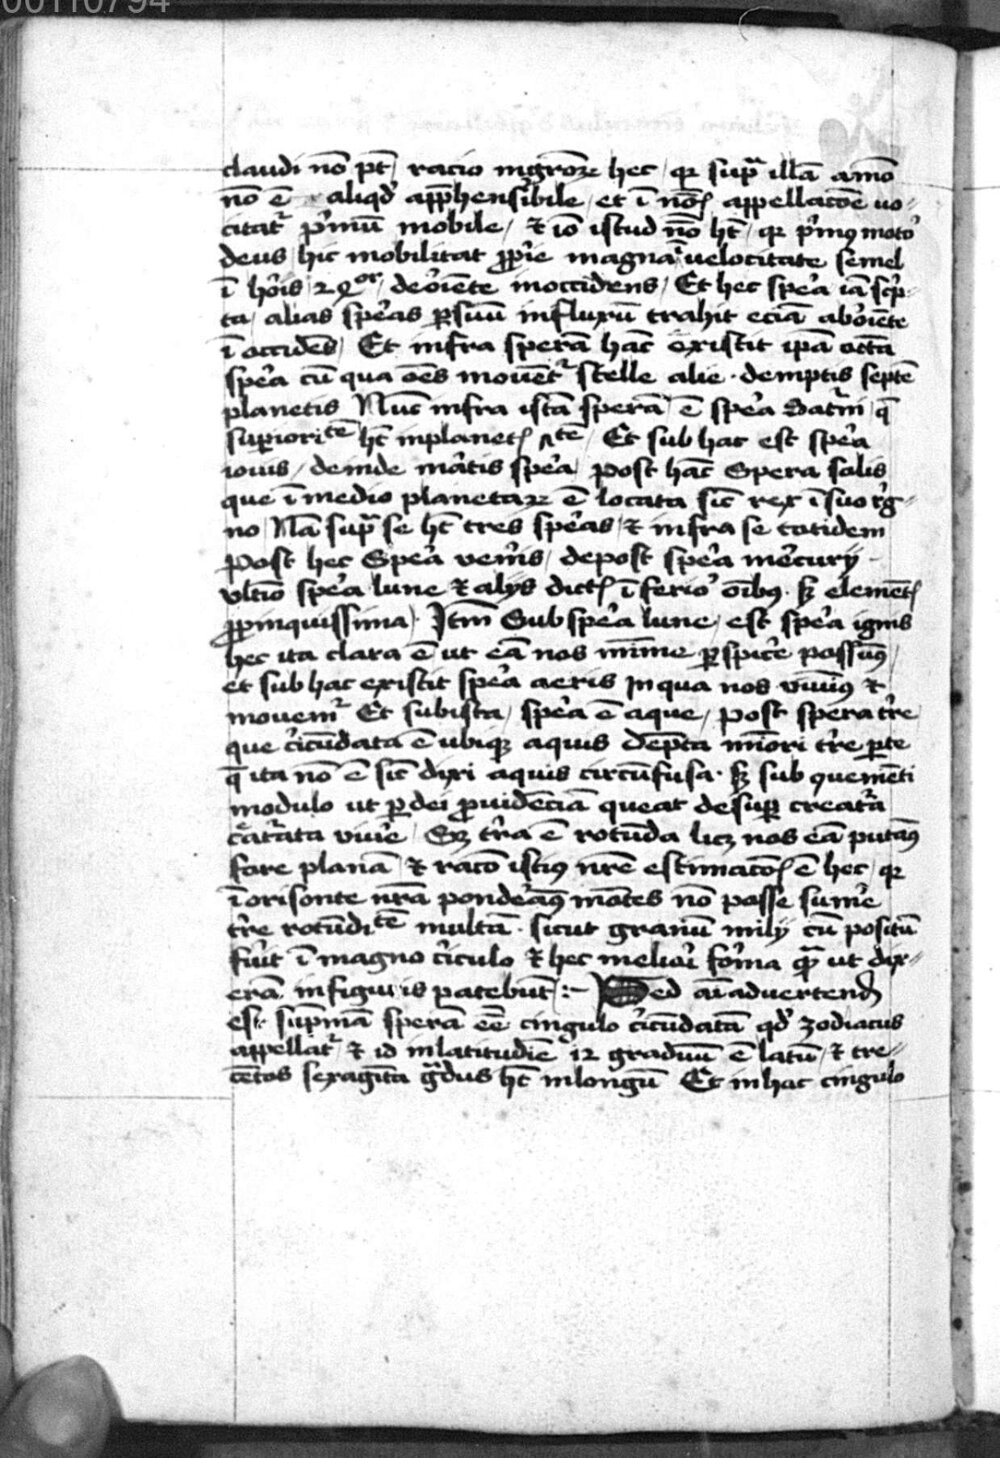 00110794
claudi nō pt̄ racio nigrōꝝ hec qꝛ sup̄ illā a mō
nō ē aliqd̓ app̄hensibile et ī nōſ appellacōe uo-
citat᷑ p̓mū mobile / ⁊ iō istud nō ht̄ qꝛ p̓mꝰ moto᷑
deus hic mobilitat ꝓp̓ie magna velocitate semel
ī ho᷑is 24or de o᷑iēte in occidens / Et hec spe᷑a iā sc͛p-
ta alias spe᷑as ꝑ suū influxū trahit eciā ab o᷑iēte
ī occidēs / Et infra sperā hāc existit ip̄a octā
spe᷑a cū qua oēs mouēt᷑ stelle alie · demptis septē
planetis Nūc infra istā sperā ē spe᷑a Sat᷑ni q̄
sup̄ioritē ht̄ in planet / Et sub hac est spe᷑a
iouis / deinde ma᷑tis spe᷑a post hāc Spera solis
que ī medio planetaꝝ ē locata sic̄ rex ī suo r͛g-
no Nā sup̄ se ht̄ tres spe᷑as ⁊ infra se totidem
Post hec Spe᷑a vene᷑is / depost spe᷑a me᷑curij ·
vltīo spe᷑a lune ⁊ alijs dict ī ferio᷑ oībꝰ · sꝫ elemēt
ꝓpinquissima · Itm̄ Sub spe᷑a lune / est spe᷑a ignis
hec ita clara ē ut eā nos mīme ꝑspic͛e possumꝰ
et sub hac existit spe᷑a aeris In qua nos viuimꝰ ⁊
mouem᷑ Et sub ista / spe᷑a ē aque / post spera t͛re
que c͛icūdata ē ubiqꝫ aquis dēpta minori t͛re ꝑte
q̄ ita nō ē sic̄ dixi aquis circūfusa · sꝫ sub quemēti
modulo ut ꝑ dei ꝓuidēciā queat desuꝑ creat᷑a
viue᷑ t͛ra ē rotūda licꝫ nos eā putamꝰ
fore planā ⁊ racō istiꝰ nr̄e estimacōſ ē hec qꝛ
ī orisonte nr̄a ponde᷑amꝰ mōtes nō posse sume᷑
t͛re rotūditē multā · sicut granū milij cū positū
fu͛it ī magno c͛iculo ⁊ hec melio᷑i fo᷑ma ut dix-
erā in figuris patebūt :- Sed aī advertend
est supmā sperā eē cingulo c͛icūdatā qd̓ zodiacus
appellat᷑ ⁊ id in latitudīe 12 graduū ē latū ⁊ tre-
cētos sexagīta g᷑dus ht̄ in longū Et in hac cingulo